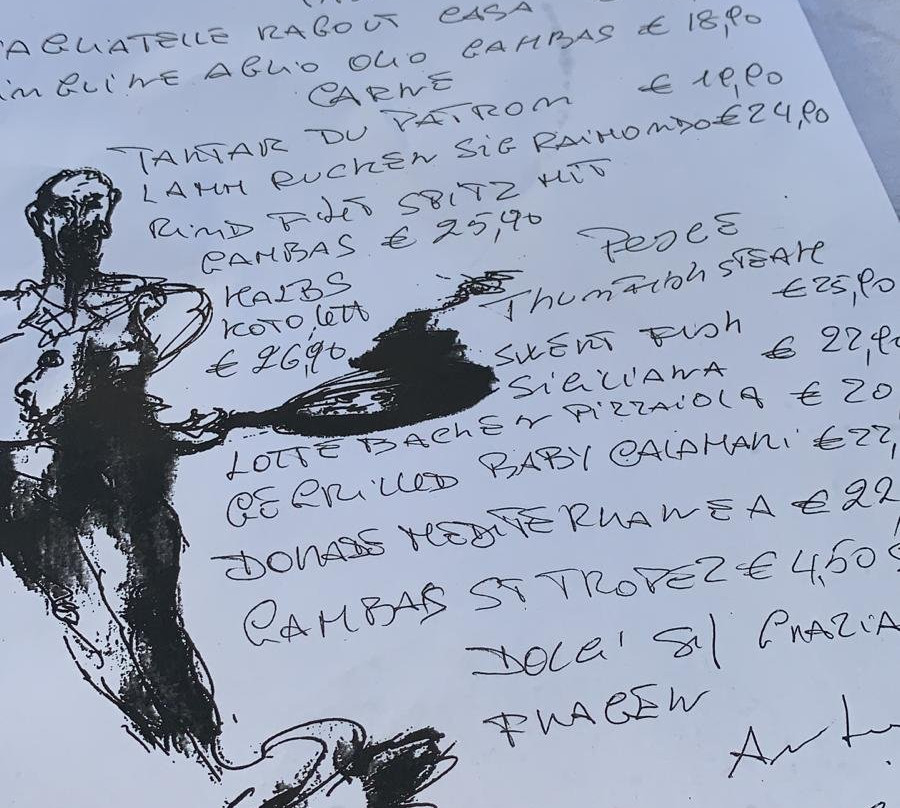 AGLIATELLE RAGOUT CASA € 18,90
AGLIO OLIO GAMBAS € 19,90
CARNE
TARTAR DU PATRON € 24,90
LAMM RUCKEN SIG RAIMONDO
RIND FILET SPITZ MIT
GAMBAS € 25,90
KALBS
KOTOLETT
€ 26,90
PESCE
THUNFISH STEAK
€ 25,90
SWERT FISH
SICILIANA € 22,90
LOTTE BACHEN PIZZAIOLA € 20
GEGRILLED BABY CALAMARI € 22,
DORADE MEDITERRANEA € 22
GAMBAS ST TROPEZ € 4,50 S
DOLCI SI GRAZIA
FRAGEN